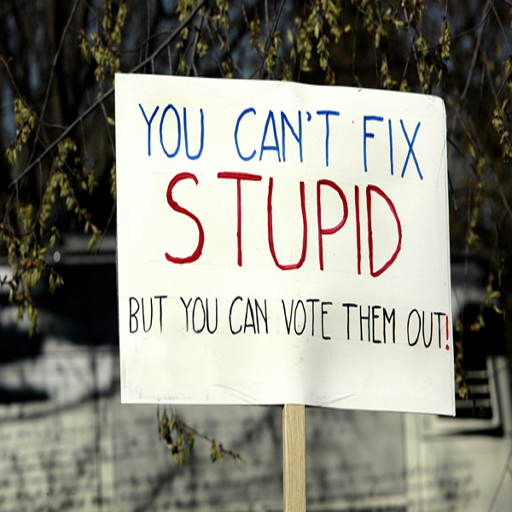 YOU CAN'T FIX
STUPID
BUT YOU CAN VOTE THEM OUT!